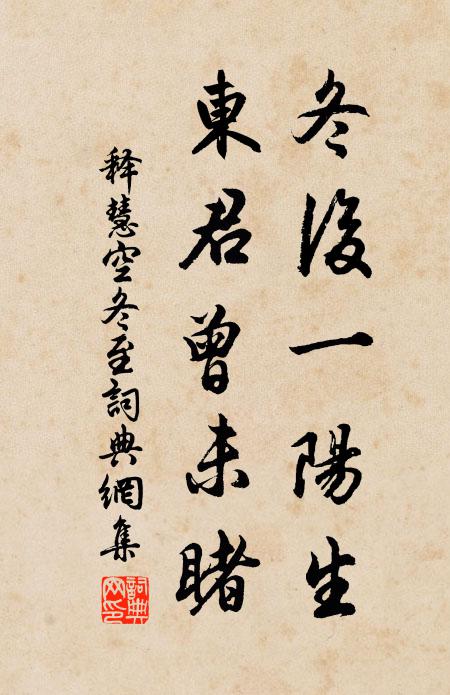 冬後一陽生
東君曾未睹
释慧空冬至詞典網集
詞典网印